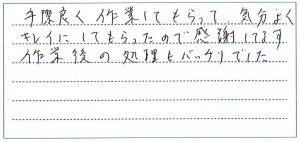 手際良く作業してもらって、気分よく
キレイにしてもらったので感謝してます
作業後の処理もバッチリでした